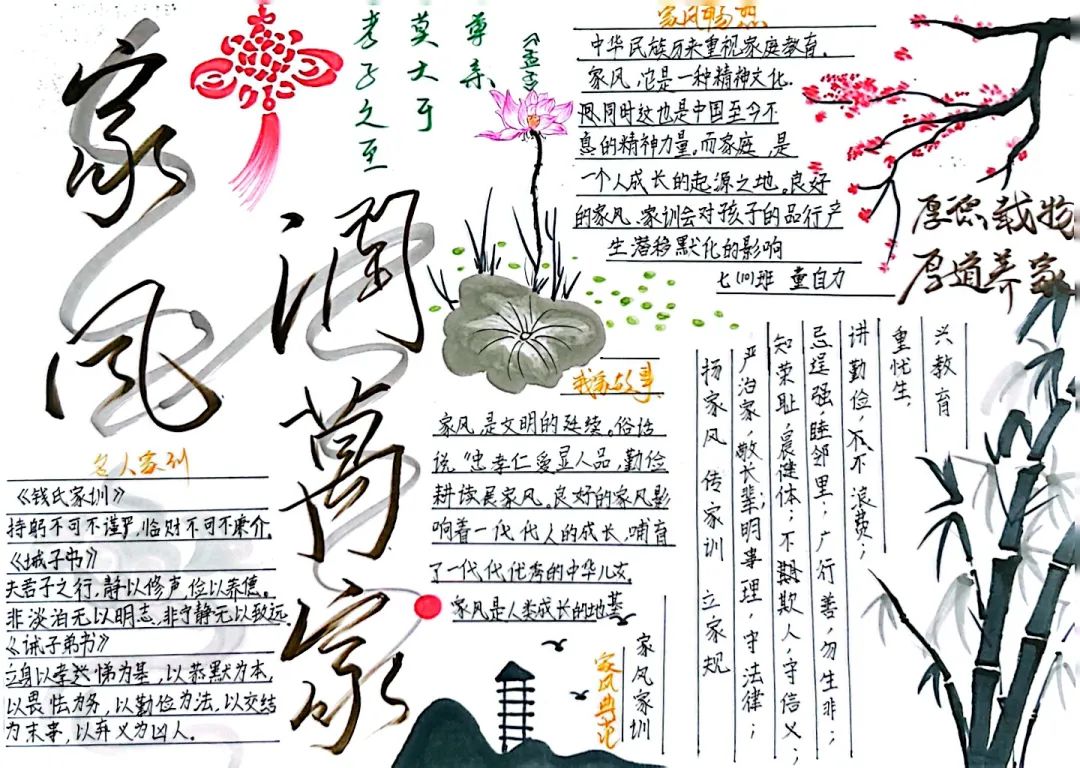 家风
润萬家
孝子之至
莫大乎
尊亲
《孟子》
家风畅想
中华民族历来重视家庭教育。
家风,它是一种精神文化.
但同时这也是中国至今不
息的精神力量。而家庭,是
一个人成长的起源之地。良好
的家风、家训会对孩子的品行产
生潜移默化的影响
七(10)班 童自力
厚德载物
厚道养家
名人家训
《钱氏家训》
持躬不可不谨严,临财不可不廉介.
《诫子书》
夫君子之行,静以修身,俭以养德。
非淡泊无以明志,非宁静无以致远
《诫子弟书》
立身以孝悌为基,以恭默为本,
以畏怯为务,以勤俭为法,以交结
为末事,以弃义为凶人.
我家故事
家风,是文明的延续。俗话
说“忠孝仁爱显人品,勤俭
耕读展家风。良好的家风影
响着一代代人的成长,哺育
了一代代优秀的中华儿女.
家风是人类成长的地基
家风典范
家风家训
扬家风 传家训 立家规
严治家,敬长辈;明事理,守法律;
知荣耻,宸健体;不欺人,守信义;
忌逞强,睦邻里;广行善,勿生非;
讲勤俭,不不浪费;
重忧生,
兴教育